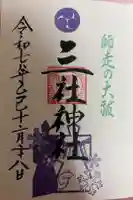 師走の大祓
三社神社
令和七年乙巳十二月十八日